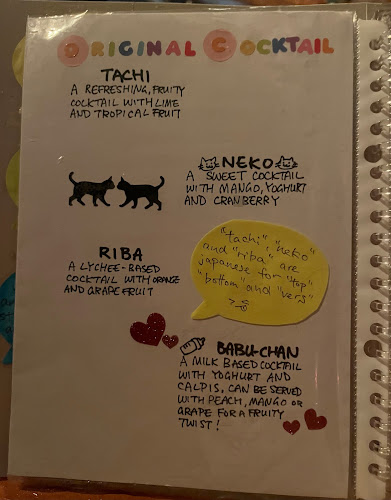 ORIGINAL COCKTAIL
TACHI
A REFRESHING, FRUITY
COCKTAIL WITH LIME
AND TROPICAL FRUIT
NEKO
A SWEET COCKTAIL
WITH MANGO, YOGHURT
AND CRANBERRY
RIBA
A LYCHEE-BASED
COCKTAIL WITH ORANGE
AND GRAPEFRUIT
"tachi", "neko"
and "riba" are
japanese for "top"
"bottom" and "vers"
BABU-CHAN
A MILK BASED COCKTAIL
WITH YOGHURT AND
CALPIS, CAN BE SERVED
WITH PEACH, MANGO OR
GRAPE FOR A FRUITY
TWIST!